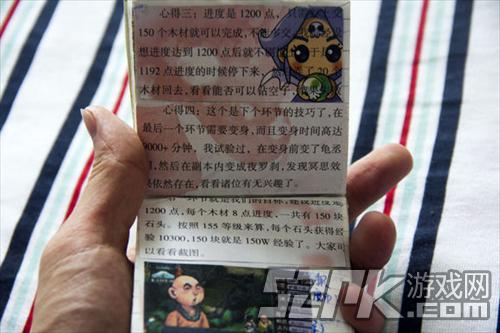 心得三：进度是1200点，
150个木材就可以完成，不
想进度达到1200点后就不
1192点进度的时候停下来，
木材回去，看看能否可以钻空子
心得四：这个是下个环节的技巧了，在
最后一个环节需要变身，而且变身时间高达
9000+分钟，我试验过，在变身前变了龟丞
，然后在副本内变成夜罗刹，发现冥思效
依然存在，看看诸位有无兴趣了。
环节就是我们的目标，建设进度是
1200点，每个木材8点进度，一共有150块
石头。按照155等级来算，每个石头获得经
验10300，150块就是150W经验了。大家可
以看看截图。
游戏网